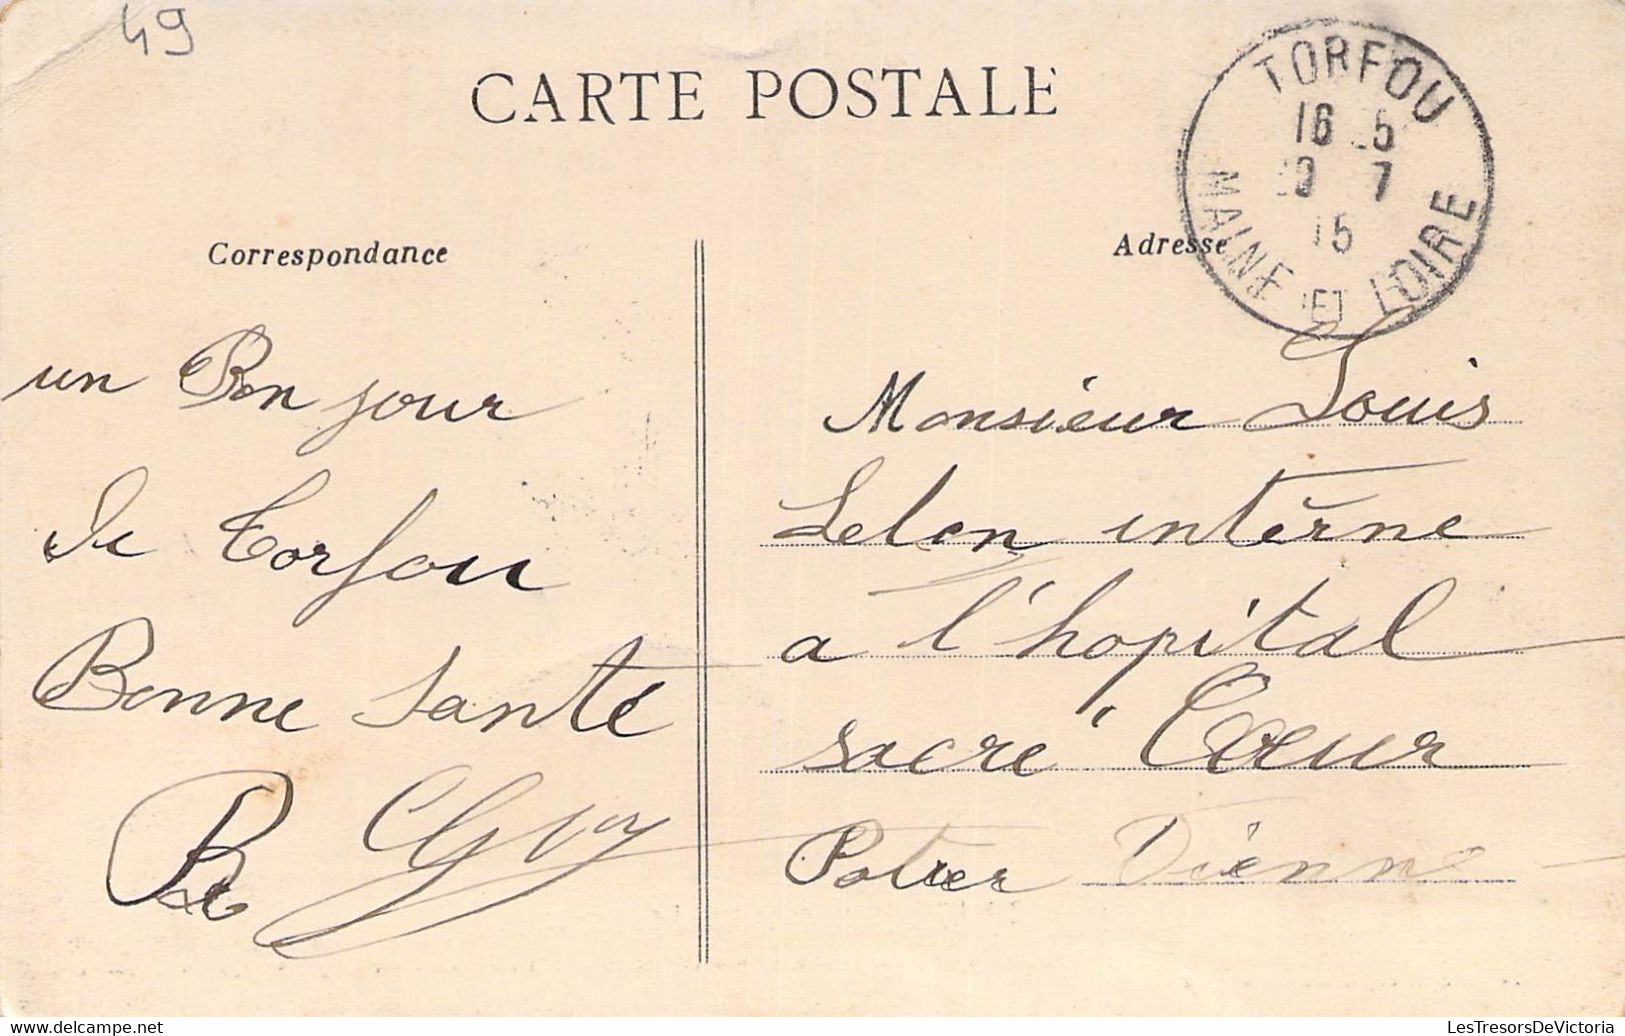 49
CARTE POSTALE
TORFOU
16 5
7
15
MAINE ET LOIRE
Correspondance
Adresse
un Bon jour
de Torfou
Bonne Santé
Monsieur Louis
Lelon interne
a l'hopital
sacré Coeur
Potier Vienne
LesTresorsDeVictoria
delcampe.net